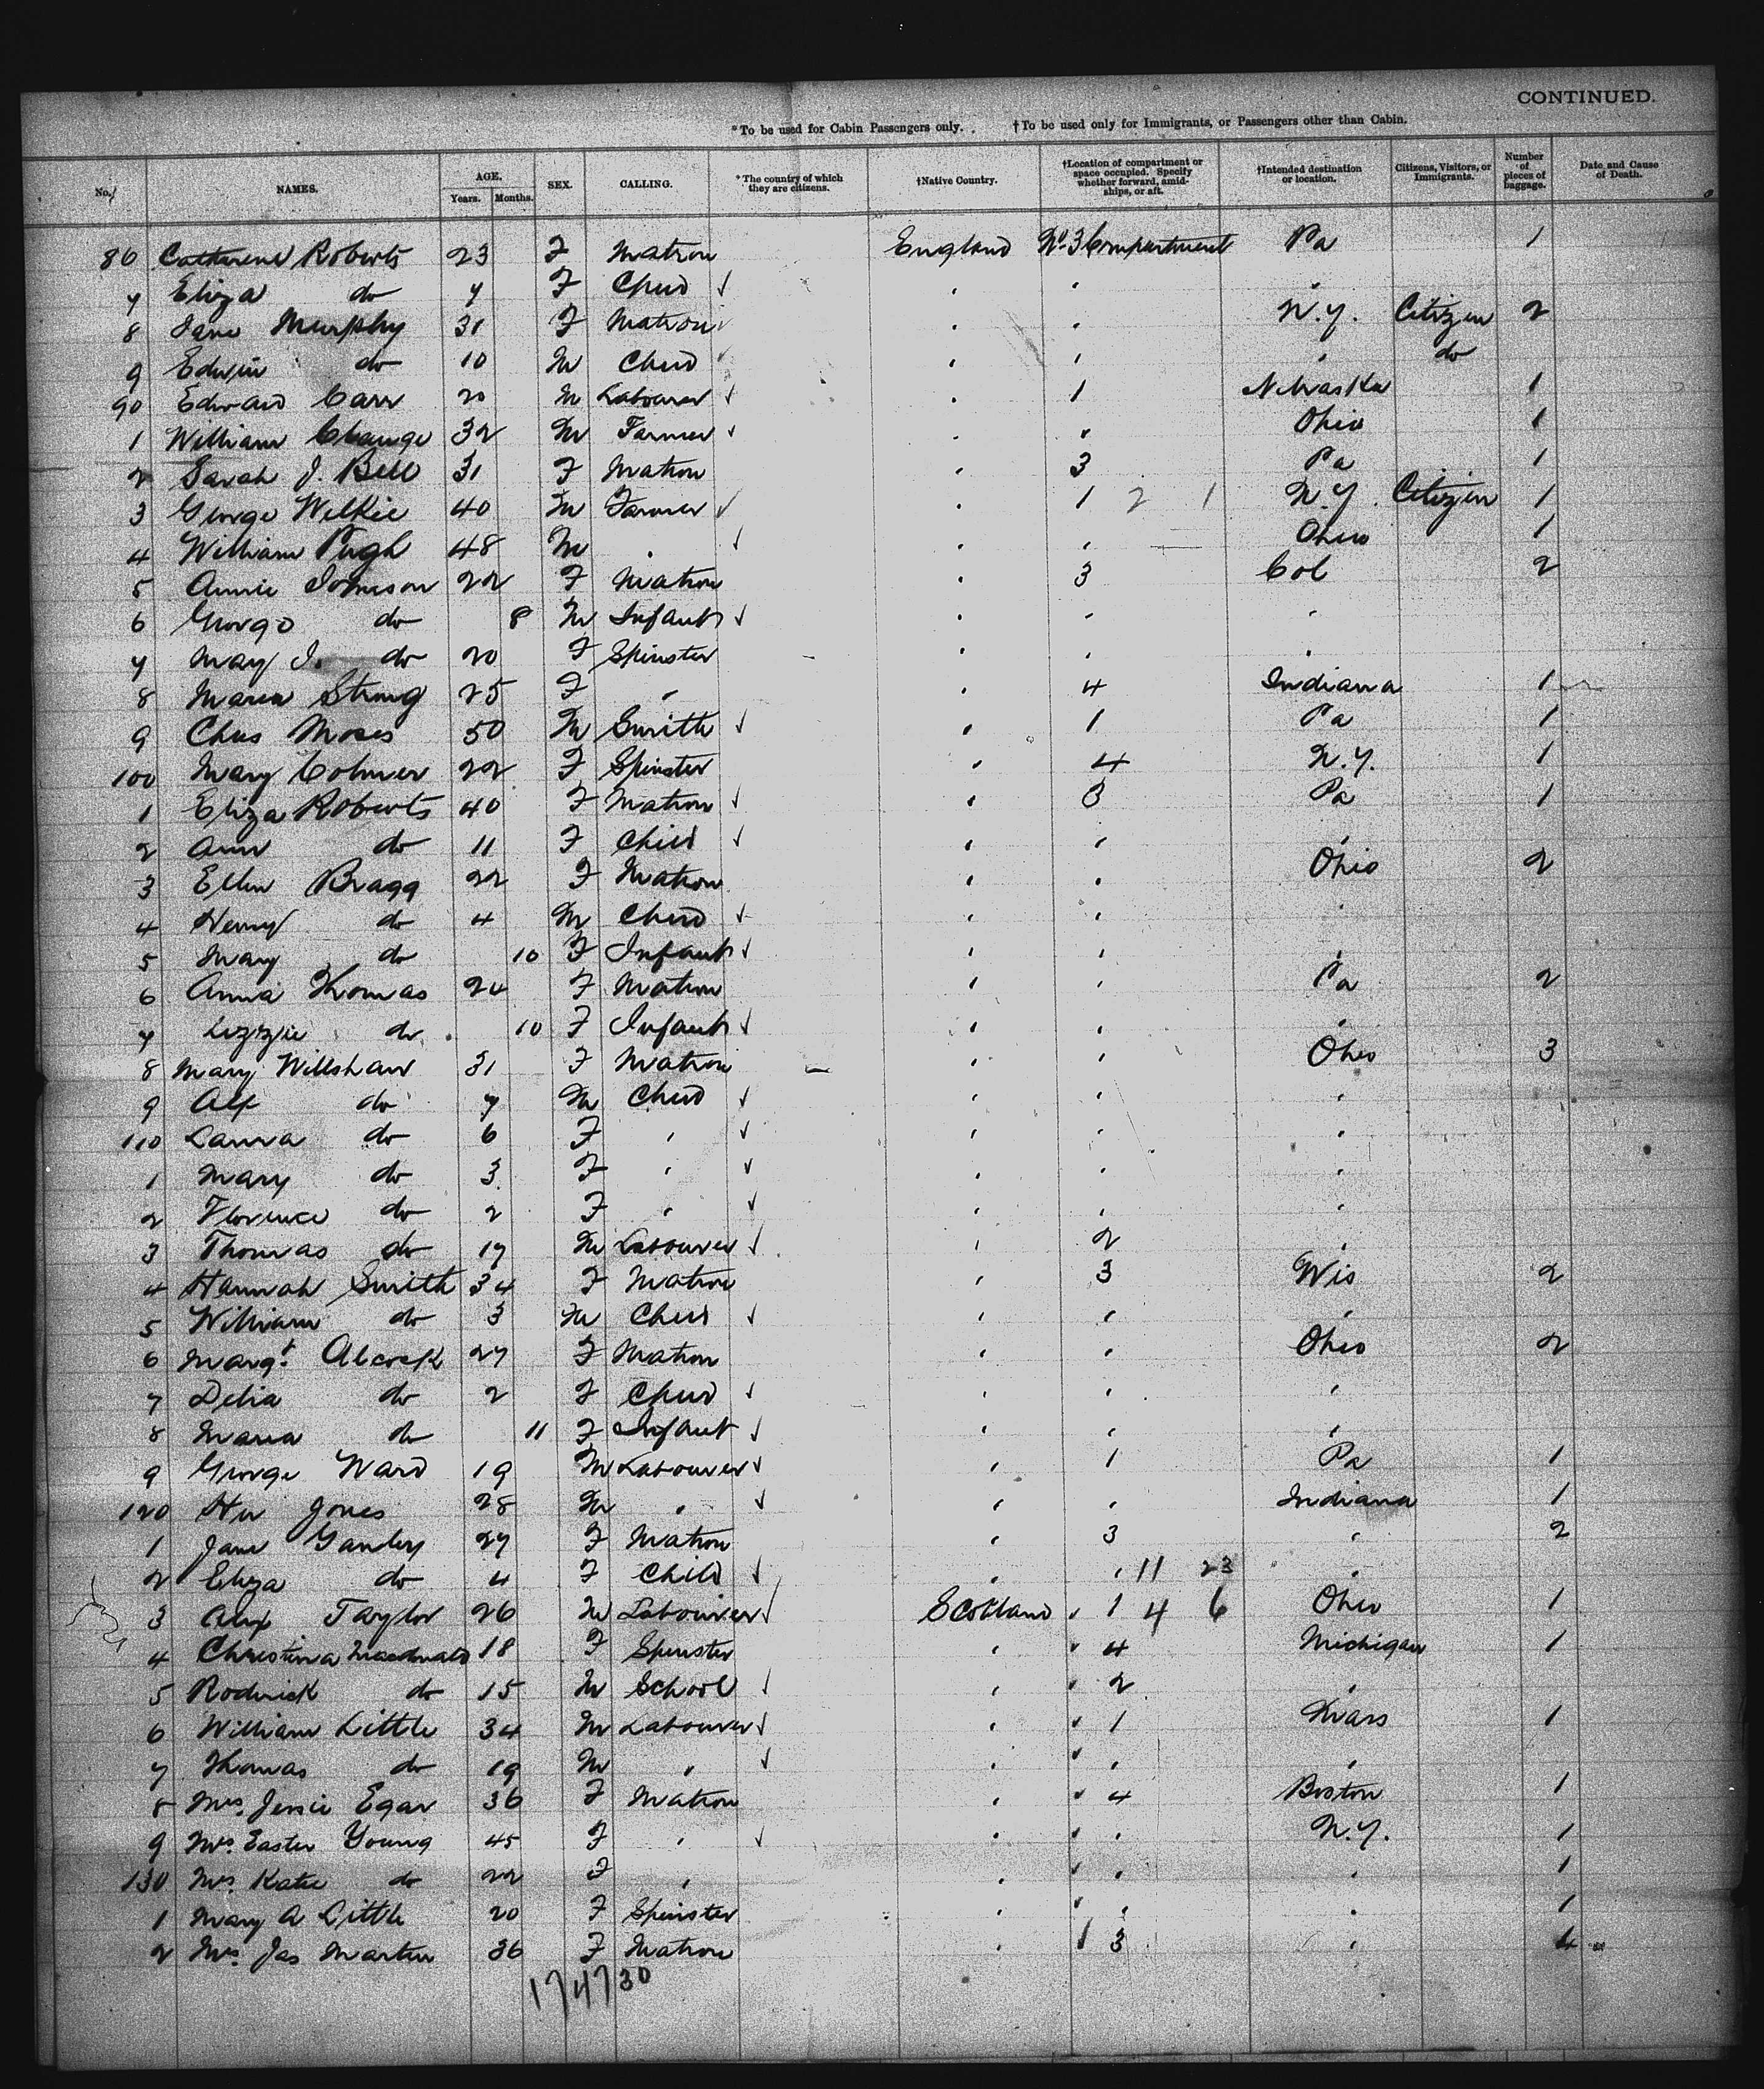 CONTINUED.
*To be used for Cabin Passengers only. †To be used only for Immigrants, or Passengers other than Cabin.
No. NAMES. AGE. Years. Months. SEX. CALLING. *The country of which they are citizens. †Native Country. †Location of compartment or space occupied. Specify whether forward, amidships, or aft. †Intended destination or location. Citizens, Visitors, or Immigrants. Number of pieces of baggage. Date and Cause of Death.
86 Catherine Roberts 23 F Matron England No. 3 Compartment Pa 1
7 Eliza do 7 F Child ✓ " " "
8 Jane Murphy 31 F Matron ✓ " " N.Y. Citizen 2
9 Edwin do 10 M Child ✓ " " " do
90 Edward Carr 20 M Labourer ✓ " 1 Nebraska 1
1 William 32 M Farmer ✓ " " Ohio 1
2 Sarah J. Bell 31 F Matron " 3 Pa 1
3 George Wilkie 40 M Farmer ✓ " 1 2 1 N.Y. Citizen 1
4 William Pugh 48 M " ✓ " " Ohio 1
5 Annie Johnson 22 F Matron " 3 Col 2
6 George do 8 M Infant ✓ " " "
7 Mary J. do 20 F Spinster " " "
8 Maria Strong 25 F " " 4 Indiana 1
9 Chas Moses 50 M Smith ✓ " 1 Pa 1
100 Mary Colmer 22 F Spinster " 4 N.Y. 1
1 Eliza Roberts 40 F Matron ✓ " 3 Pa 1
2 Ann do 11 F Child ✓ " " "
3 Ellen Bragg 22 F Matron " " Ohio 2
4 Henry do 4 M Child ✓ " " "
5 Mary do 10 F Infant ✓ " " "
6 Anna Thomas 24 F Matron " " Pa 2
7 Lizzie do 10 F Infant ✓ " " "
8 Mary Willshaw 31 F Matron " " Ohio 3
9 Alf do 7 M Child ✓ " " "
110 Laura do 6 F " ✓ " " "
1 Mary do 3 F " ✓ " " "
2 Florence do 2 F " ✓ " " "
3 Thomas do 17 M Labourer ✓ " 2 "
4 Hannah Smith 34 F Matron " 3 Wis 2
5 William do 3 M Child ✓ " " "
6 Margt. Alcock 27 F Matron " " Ohio 2
7 Delia do 2 F Child ✓ " " "
8 Maria do 11 F Infant ✓ " " "
9 George Ward 19 M Labourer ✓ " 1 Pa 1
120 Jones 28 M " ✓ " " Indiana 1
1 Jane Ganley 27 F Matron " 3 " 2
2 Eliza do 4 F Child ✓ " " 11 23 "
3 Alex Taylor 26 M Labourer ✓ Scotland " 1 4 6 Ohio 1
4 Christina Macdonald 18 F Spinster " " 4 Michigan 1
5 Roderick do 15 M School ✓ " " 2 "
6 William Little 34 M Labourer ✓ " " 1 1
7 Thomas do 19 M " ✓ " " " "
8 Mrs. Jessie Egar 36 F Matron " " 4 Boston 1
9 Mrs. Easter Young 45 F " ✓ " " " N.Y. 1
130 Mrs. Katie do 22 F " " " " " 1
1 Mary A Little 20 F Spinster " " " " 1
2 Mrs. Jas Martin 36 F Matron " " 3 " 4
174730